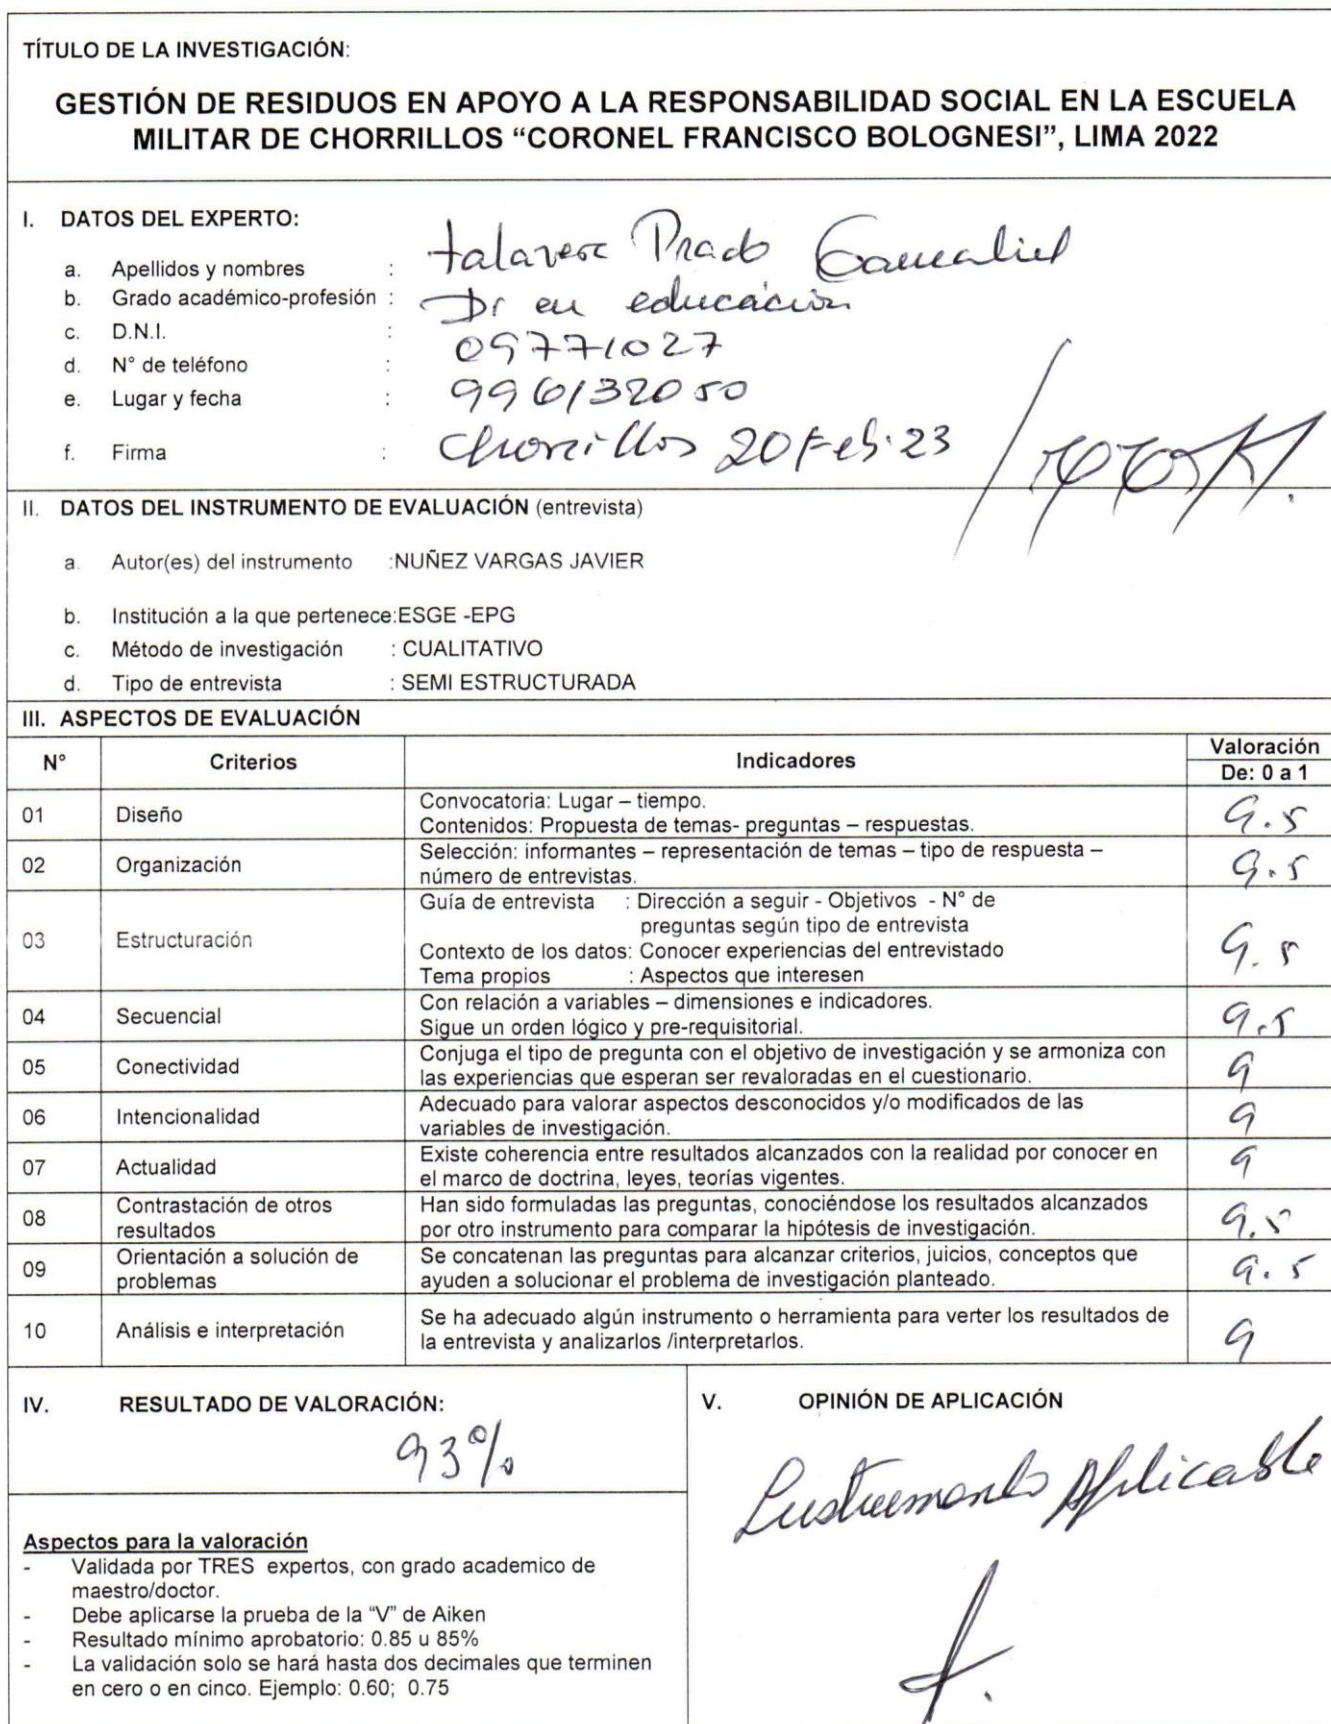 TÍTULO DE LA INVESTIGACIÓN:
GESTIÓN DE RESIDUOS EN APOYO A LA RESPONSABILIDAD SOCIAL EN LA ESCUELA
MILITAR DE CHORRILLOS “CORONEL FRANCISCO BOLOGNESI”, LIMA 2022
I. DATOS DEL EXPERTO:
a. Apellidos y nombres : talavera Prado Gamaliel
b. Grado académico-profesión : Dr en educación
c. D.N.I. : 09771027
d. N° de teléfono : 996132050
e. Lugar y fecha : Chorrillos 20 Feb. 23
f. Firma :
II. DATOS DEL INSTRUMENTO DE EVALUACIÓN (entrevista)
a. Autor(es) del instrumento :NUÑEZ VARGAS JAVIER
b. Institución a la que pertenece:ESGE -EPG
c. Método de investigación : CUALITATIVO
d. Tipo de entrevista : SEMI ESTRUCTURADA
III. ASPECTOS DE EVALUACIÓN
N° Criterios Indicadores Valoración
De: 0 a 1
01 Diseño Convocatoria: Lugar – tiempo.
Contenidos: Propuesta de temas- preguntas – respuestas. 9.5
02 Organización Selección: informantes – representación de temas – tipo de respuesta –
número de entrevistas. 9.5
03 Estructuración Guía de entrevista : Dirección a seguir - Objetivos - N° de
preguntas según tipo de entrevista
Contexto de los datos: Conocer experiencias del entrevistado
Tema propios : Aspectos que interesen 9.5
04 Secuencial Con relación a variables – dimensiones e indicadores.
Sigue un orden lógico y pre-requisitorial. 9.5
05 Conectividad Conjuga el tipo de pregunta con el objetivo de investigación y se armoniza con
las experiencias que esperan ser revaloradas en el cuestionario. 9
06 Intencionalidad Adecuado para valorar aspectos desconocidos y/o modificados de las
variables de investigación. 9
07 Actualidad Existe coherencia entre resultados alcanzados con la realidad por conocer en
el marco de doctrina, leyes, teorías vigentes. 9
08 Contrastación de otros resultados Han sido formuladas las preguntas, conociéndose los resultados alcanzados
por otro instrumento para comparar la hipótesis de investigación. 9.5
09 Orientación a solución de problemas Se concatenan las preguntas para alcanzar criterios, juicios, conceptos que
ayuden a solucionar el problema de investigación planteado. 9.5
10 Análisis e interpretación Se ha adecuado algún instrumento o herramienta para verter los resultados de
la entrevista y analizarlos /interpretarlos. 9
IV. RESULTADO DE VALORACIÓN:
93%
Aspectos para la valoración
- Validada por TRES expertos, con grado academico de
maestro/doctor.
- Debe aplicarse la prueba de la “V” de Aiken
- Resultado mínimo aprobatorio: 0.85 u 85%
- La validación solo se hará hasta dos decimales que terminen
en cero o en cinco. Ejemplo: 0.60; 0.75
V. OPINIÓN DE APLICACIÓN
Instrumento Aplicable